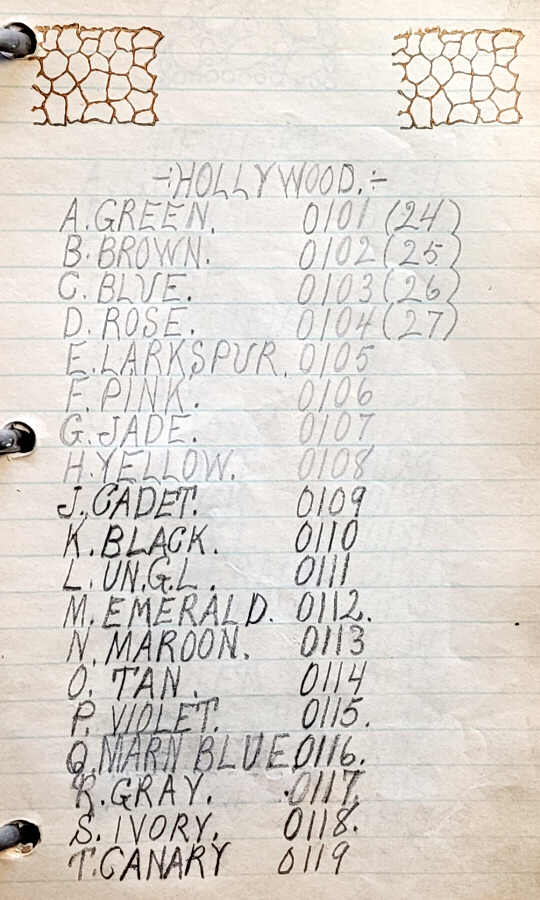 -:HOLLYWOOD.:-
A. GREEN. 0101 (24)
B. BROWN. 0102 (25)
C. BLUE. 0103 (26)
D. ROSE. 0104 (27)
E. LARKSPUR. 0105
F. PINK. 0106
G. JADE. 0107
H. YELLOW. 0108
J. CADET. 0109
K. BLACK. 0110
L. UN.G.L. 0111
M. EMERALD. 0112.
N. MAROON. 0113
O. TAN. 0114
P. VIOLET. 0115.
Q. MARN BLUE 0116.
R. GRAY. 0117.
S. IVORY. 0118.
T. CANARY 0119